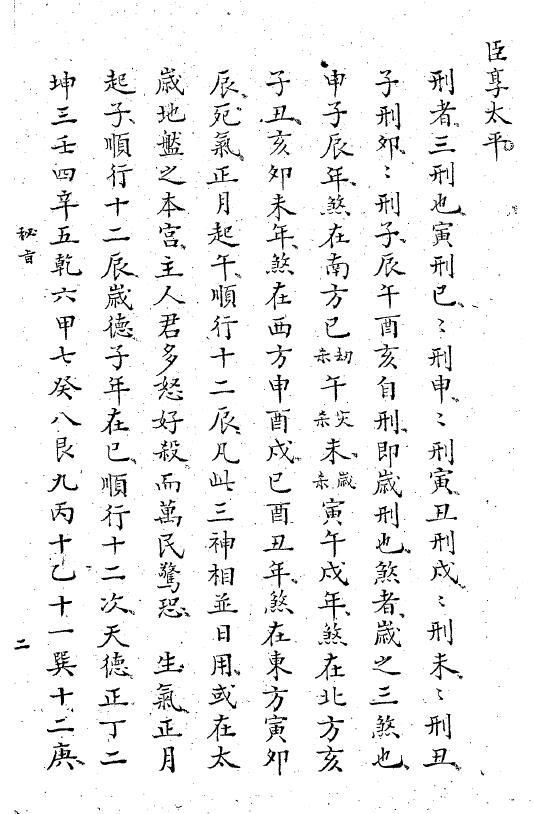 臣享太平。
刑者、三刑也、寅刑巳、〻刑申、〻刑寅、丑刑戍、〻刑未、〻刑丑、
子刑卯、〻刑子、辰午酉亥自刑、即歲刑也、煞者、歲之三煞也、
申子辰年、煞在南方、巳劫杀午灾杀未歲杀、寅午戍年、煞在北方亥
子丑、亥卯未年、煞在西方申酉戍、巳酉丑年、煞在東方寅卯
辰、死氣、正月起午、順行十二辰、凡此三神相並日用、或在太
歲地盤之本宮、主人君多怒好殺而萬民驚恐、 生氣、正月
起子、順行十二辰、歲德、子年在巳、順行十二次、天德正丁二
坤三壬四辛五乾六甲七癸八艮九丙十乙十一巽十二庚、
秘旨
二